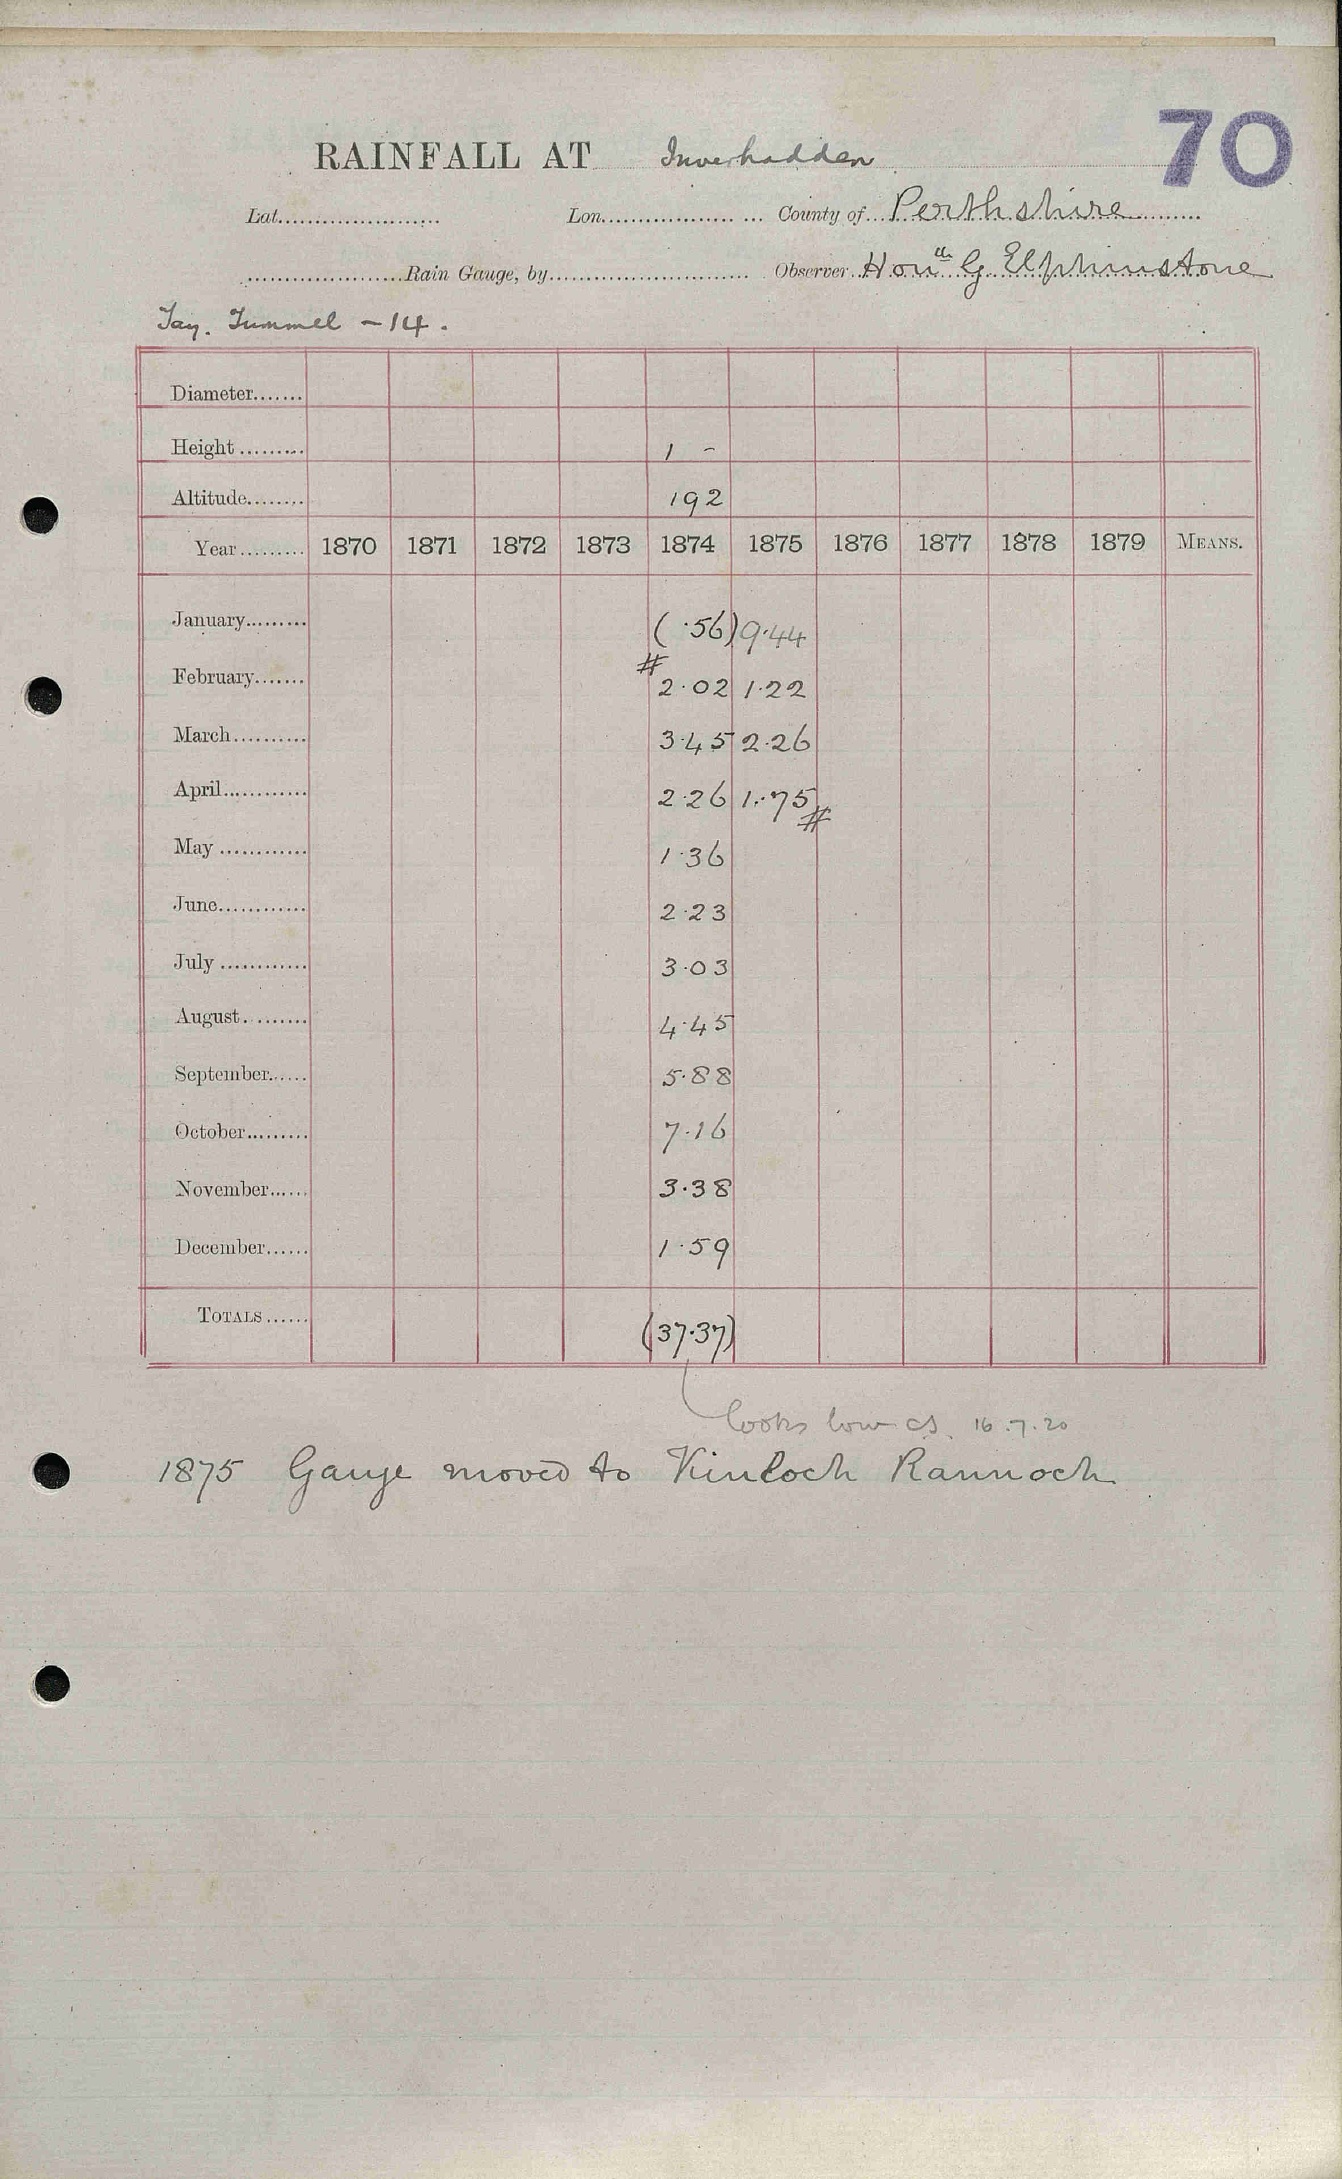 70
RAINFALL AT Inverhadden
Lat. Lon. County of Perthshire
Rain Gauge, by Observer Honᵗʰ G Elphinstone
Tay. Tummel - 14.
Diameter
Height 1 -
Altitude 192
Year 1870 1871 1872 1873 1874 1875 1876 1877 1878 1879 MEANS.
January (.56) 9.44
#
February 2.02 1.22
March 3.45 2.26
April 2.26 1.75
#
May 1.36
June 2.23
July 3.03
August 4.45
September 5.88
October 7.16
November 3.38
December 1.59
TOTALS (37.37)
looks low CS. 16.7.20
1875 Gauge moved to Kinloch Rannoch